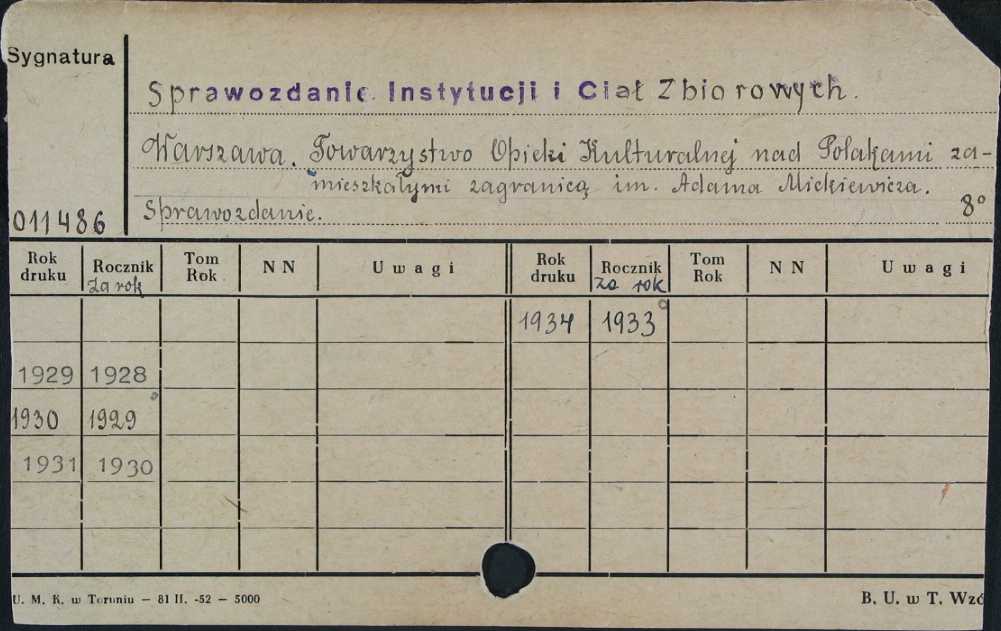 Sygnatura
Sprawozdanie Instytucji i Ciał Zbiorowych.
Warszawa. Towarzystwo Opieki Kulturalnej nad Polakami za-
mieszkałymi zagranicą im. Adama Mickiewicza.
Sprawozdanie. 8°
011486
Rok druku Rocznik za rok Tom Rok N N Uwagi Rok druku Rocznik za rok Tom Rok N N Uwagi
1934 1933
1929 1928
1930 1929
1931 1930
U. M. K. w Toruniu — 81 II. -52 — 5000 B. U. w T. Wzó